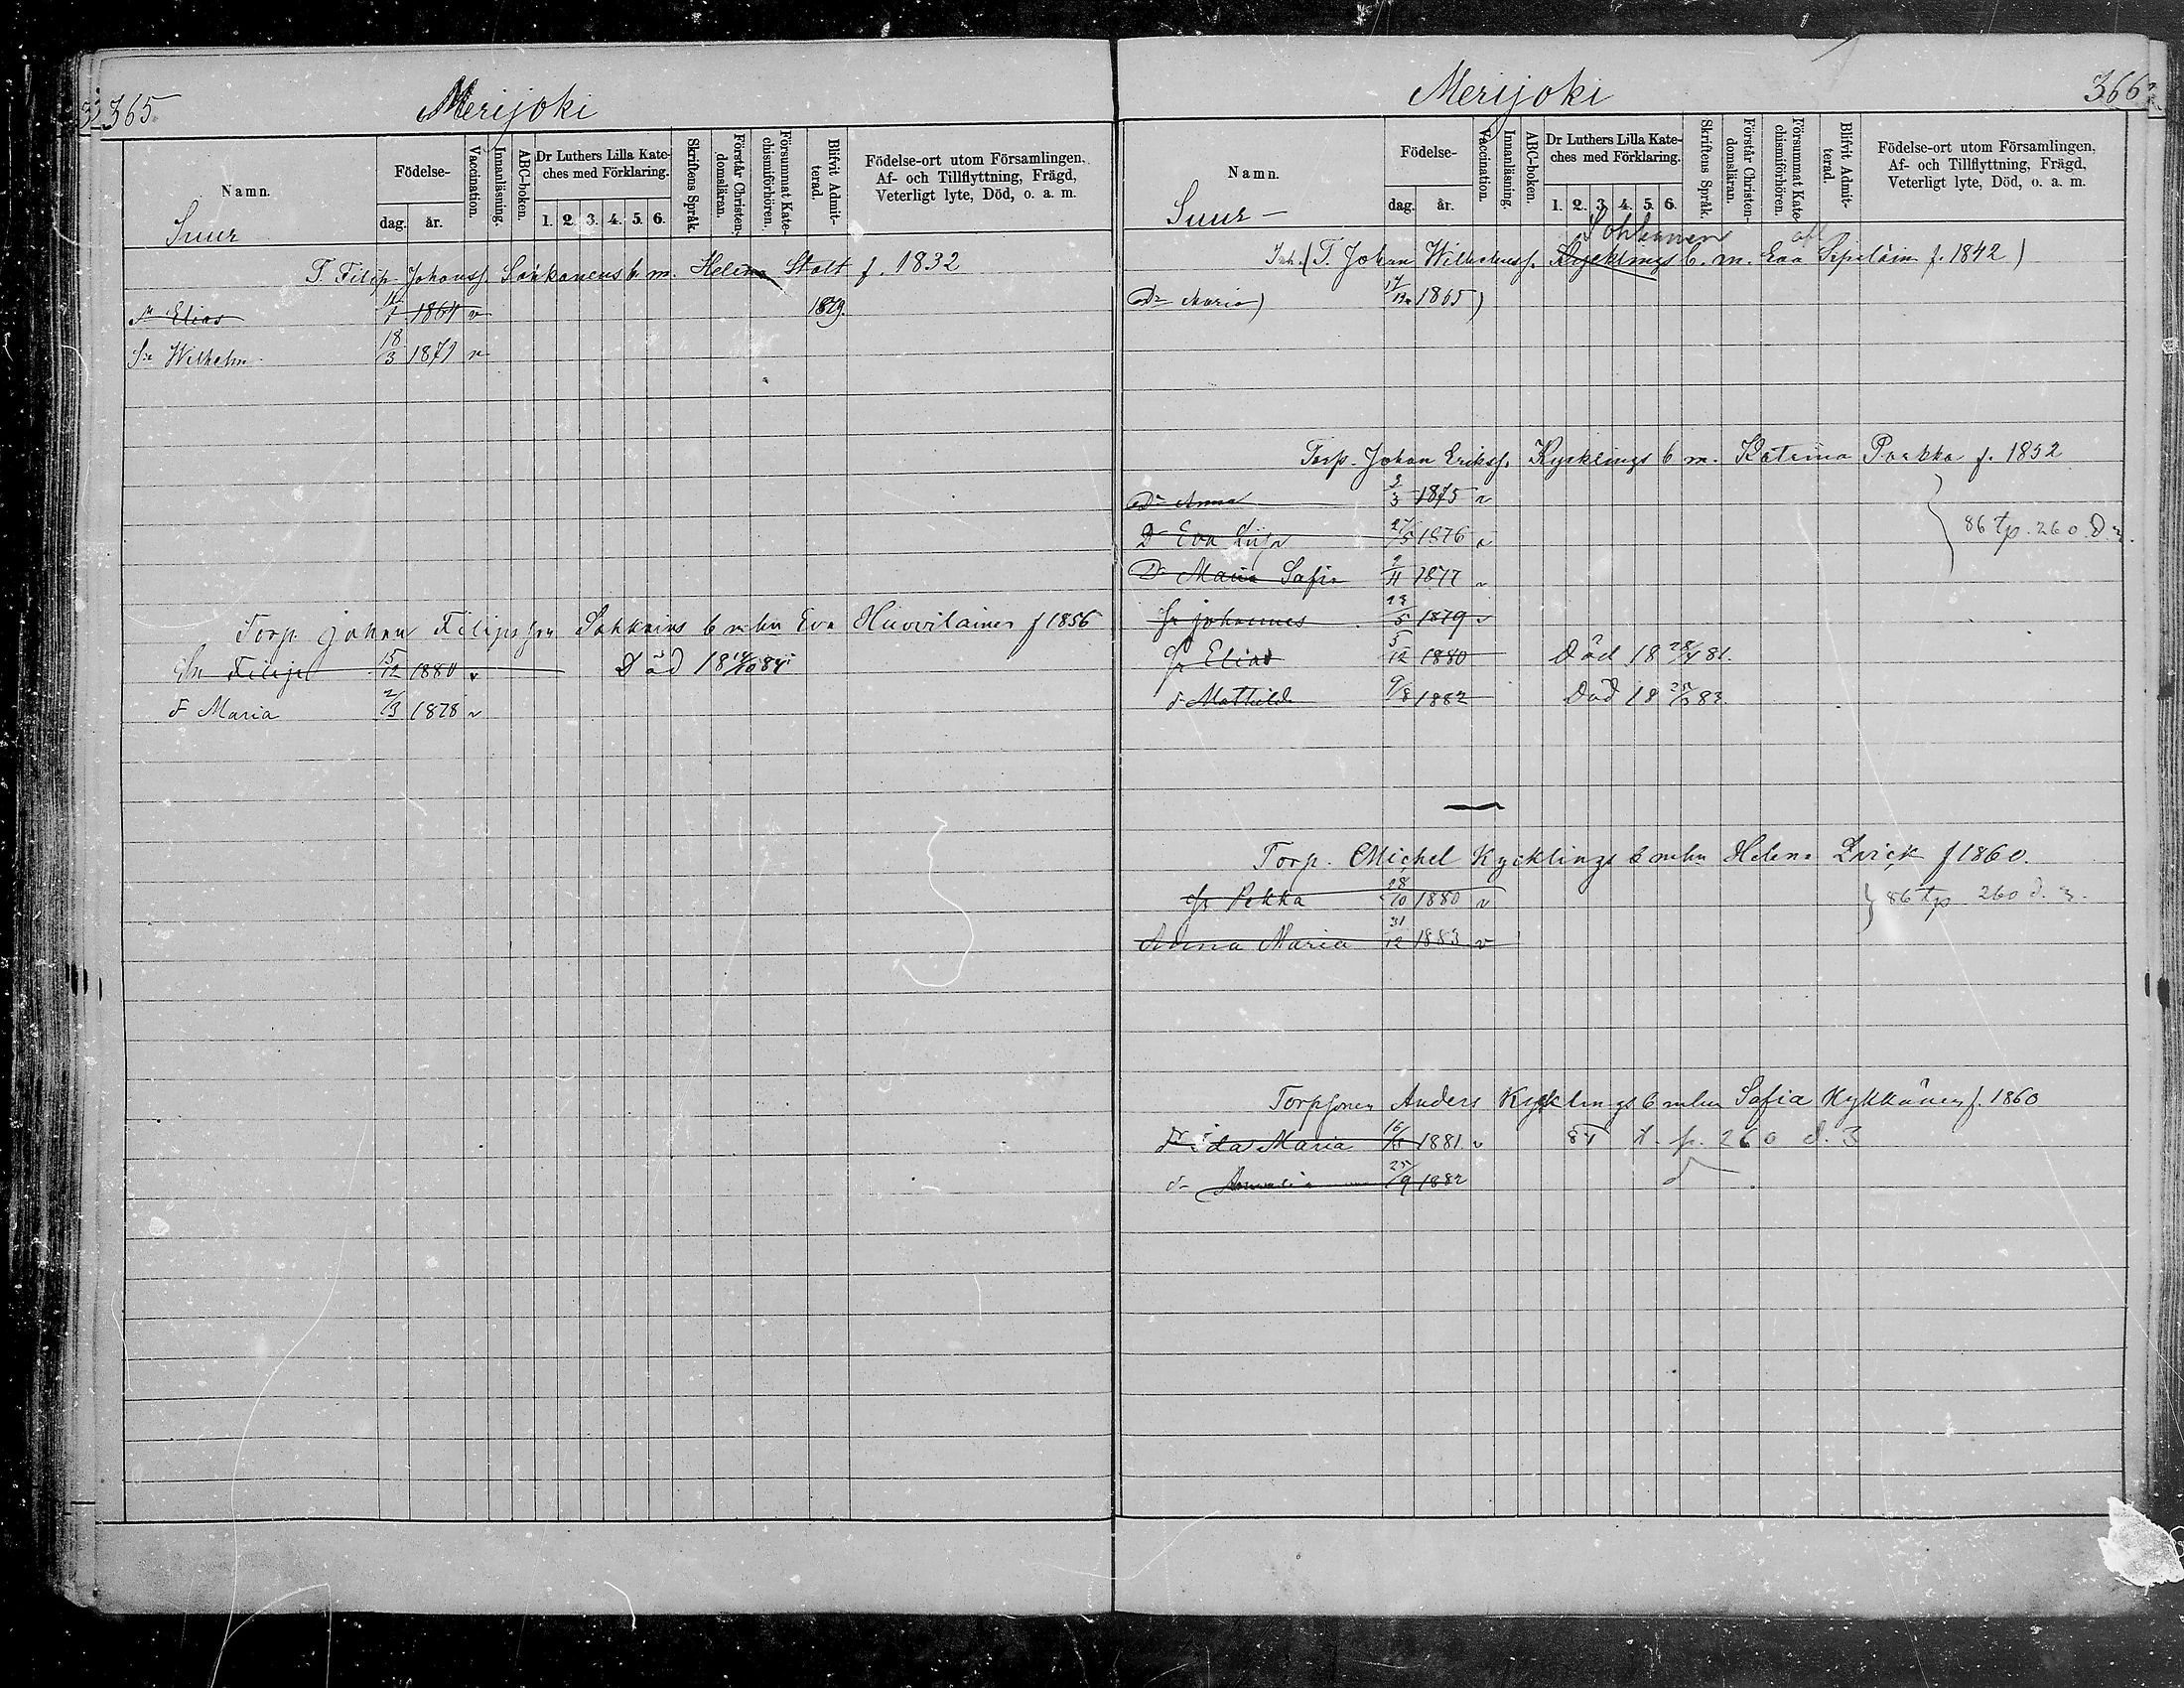 365
Merijoki
Namn.
Födelse-
dag. år.
Vaccination.
Innanläsning.
ABC-boken.
Dr Luthers Lilla Kate-
ches med Förklaring.
1. 2. 3. 4. 5. 6.
Skriftens Språk.
Förstår Christen-
domsläran.
Försummat Kate-
chismiförhören.
Blifvit Admit-
terad.
Födelse-ort utom Församlingen.
Af- och Tillflyttning, Frägd,
Veterligt lyte, Död, o. a. m.
Suur
T. Filip Johanss. Sohkanens b m. Helena Stolt f. 1832
Sn Elias 1 1864 v 1879.
Sn Wilhelm 18/3 1871 v
Torp. Johan Filipsson Sohkains b mhu Eva Huovilainen f 1856
Sn Filip 15/12 1880 v Död 18 /10 84
d Maria 2/3 1878 v
366
Merijoki
Namn.
Födelse-
dag. år.
Vaccination.
Innanläsning.
ABC-boken.
Dr Luthers Lilla Kate-
ches med Förklaring.
1. 2. 3. 4. 5. 6.
Skriftens Språk.
Förstår Christen-
domsläran.
Försummat Kate-
chismiförhören.
Blifvit Admit-
terad.
Födelse-ort utom Församlingen,
Af- och Tillflyttning, Frägd,
Veterligt lyte, Död, o. a. m.
Suur –
Sohkanen
Joh. (T. Johan Wilhelmss. Kycklings b. m. Eva Sipiläin f. 1842)
Dr Maria) 17/12 1865)
Torp. Johan Erikss. Kycklings b m. Katrina Porkka f. 1852
Dr Anna 2/3 1875 v
D Eva Liisa 27/5 1876 v
86 tp. 260 d 3.
Dr Maria Sofia 2/11 1877 v
Sn Johannes 23/5 1879 v
Sn Elias 5/12 1880 Död 18 28/4 81.
d Mathilda 9/8 1882 Död 18 83.
Torp. Michel Kycklings b mhu Helena Lvick f 1860.
Sn Pekka 28/10 1880 v 86 tp 260 d. 3.
Anna Maria 31/12 1883 v
Torpsonen Anders Kycklings b mhu Sofia Kykkänen f. 1860
dr Ida Maria 16/3 1881 v t. p. 260 d. 3
d 25/9 1882